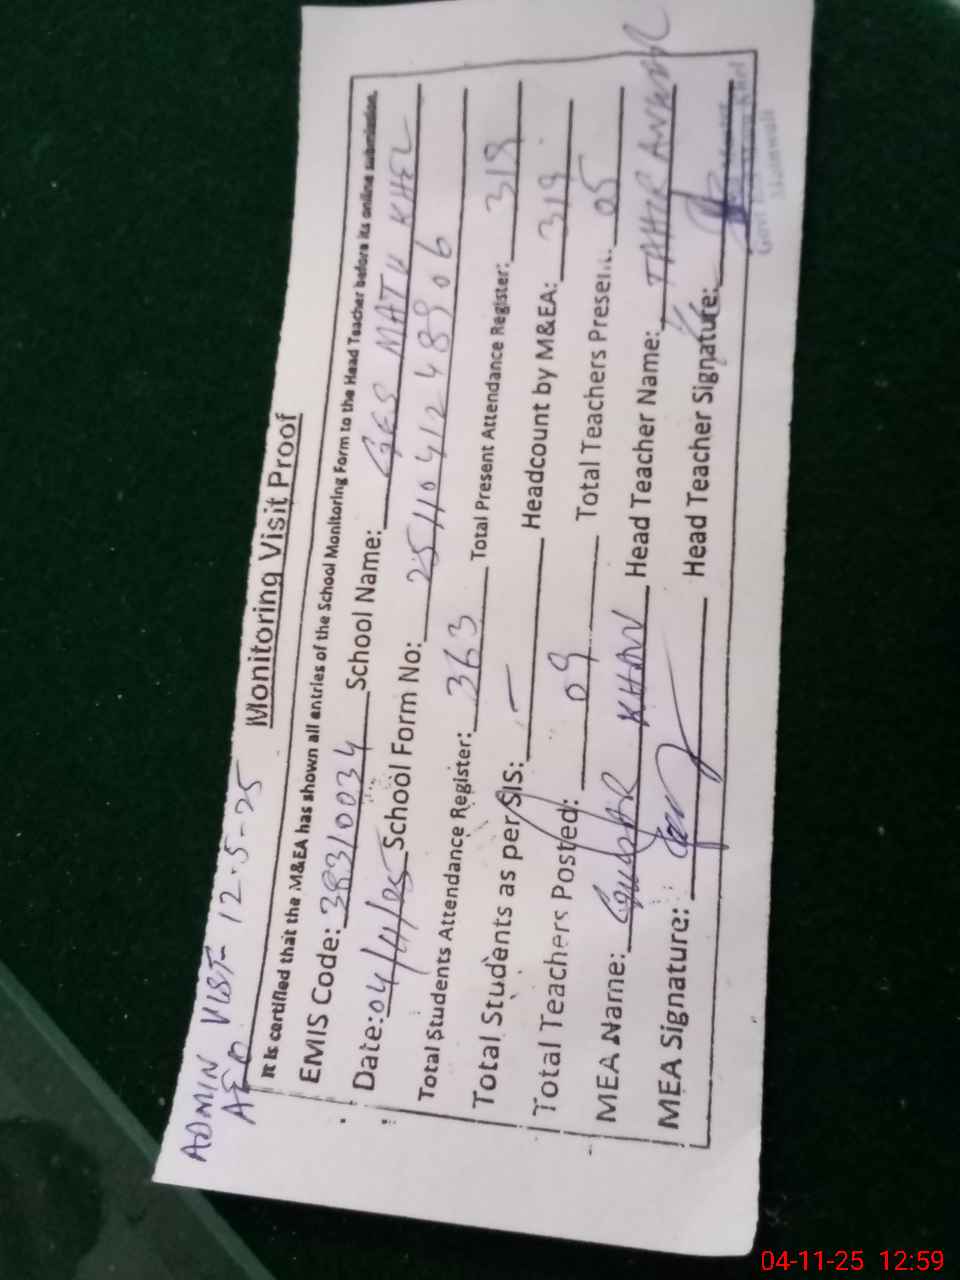 ADMIN VISIT- 12-5-25
AEO
Monitoring Visit Proof
It is certified that the M&EA has shown all entries of the School Monitoring Form to the Head Teacher before its online submission.
EMIS Code: 38310034 School Name: GES MATU KHEL
Date: 04/11/25 School Form No: 2511041248906
Total Students Attendance Register: 363 Total Present Attendance Register: 319
Total Students as per SIS: - Headcount by M&EA: 319
Total Teachers Posted: 09 Total Teachers Present: 05
MEA Name: KHAN Head Teacher Name: TAHIR ANWAR
MEA Signature: Head Teacher Signature:
Govt
Mianwali
04-11-25 12:59